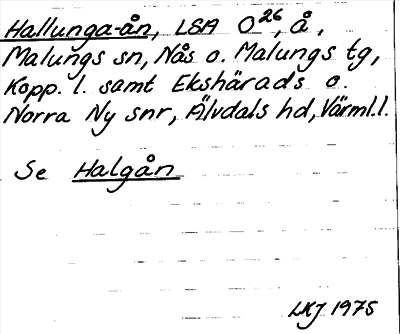 Hallunga-ån, LSA O26, å,
Malungs sn, Nås o. Malungs tg,
Kopp. l. samt Ekshärads o.
Norra Ny snr, Älvdals hd, Värml. l.
Se Halgån
LKJ 1975